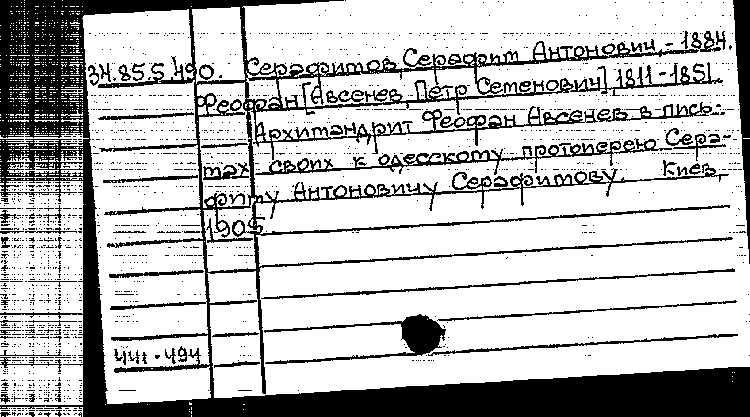 34.85.5.490. Серафимов, Серафим Антонович, - 1884.
Феофан [Авсенев, Петр Семенович], 1811-1851.
Архимандрит Феофан Авсенев в пись-
мах своих к одесскому протоиерею Сера-
фиму Антоновичу Серафимову. Киев,
1905
441-494